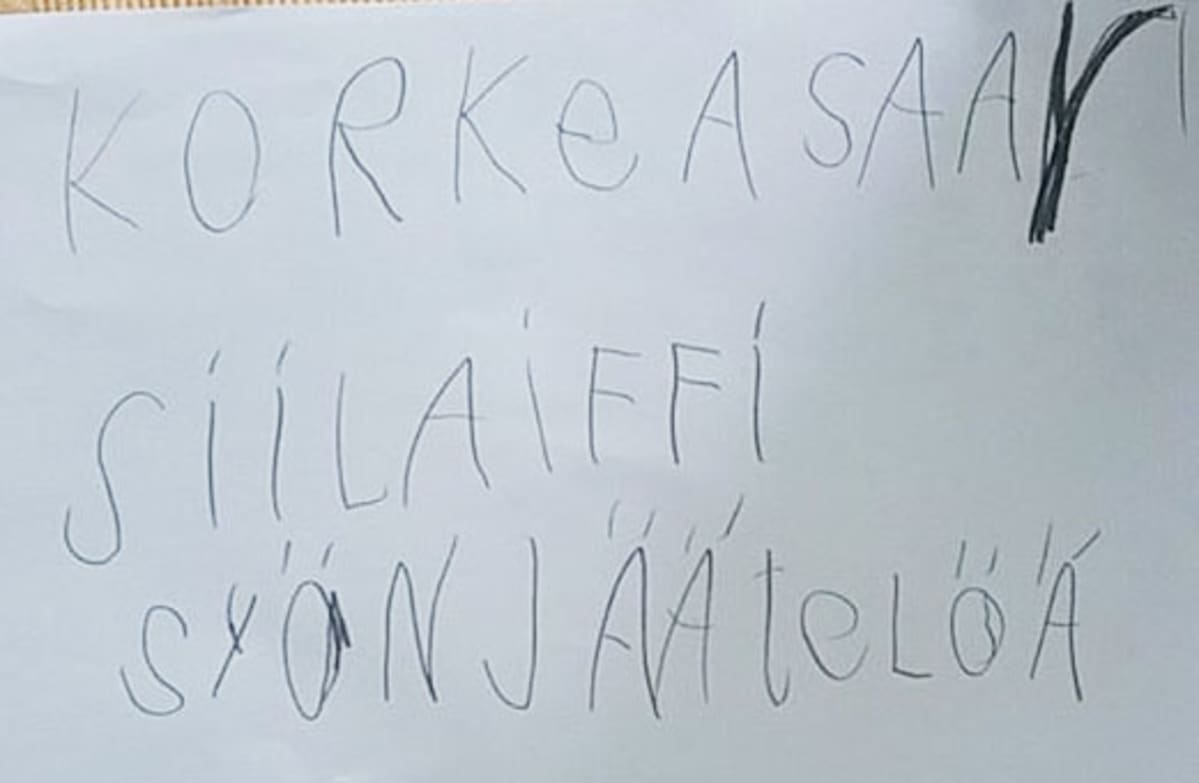 KORKeASAArI
SiiLAiFFi
SYÖNJÄÄteLÖÄ